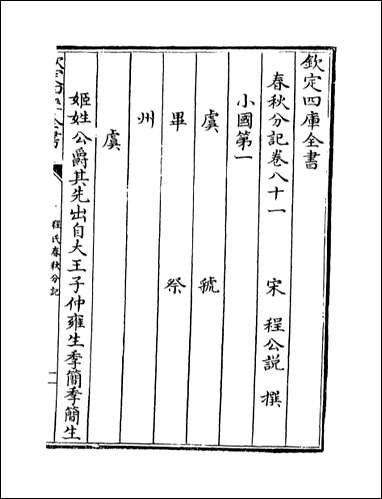 欽定四庫全書
春秋分記卷八十一
宋 程公說 撰
小國第一
虞 虢
畢 祭
州
虞
姬姓公爵其先出自大王子仲雍生季簡季簡生
程氏春秋分記